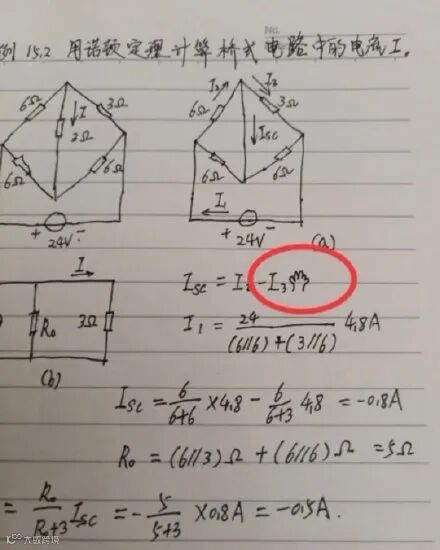 例 15.2 用诺顿定理计算桥式电路中的电流 I。
6Ω 3Ω I 3Ω 6Ω 6Ω + 24V -
I₂ I₃ 6Ω 3Ω Isc 6Ω 6Ω I₁ + 24V - (a)
I R₀ 3Ω (b)
Isc = I₂ - I₃
I₁ = 24 / (6//6)+(3//6) 4,8A
Isc = 6/6+6 ×4,8 - 6/6+3 4,8 = -0,8A
R₀ = (6//3)Ω + (6//6)Ω = 5Ω
= R₀/R+3 Isc = - 5/5+3 ×0,8A = -0,5A.
大数跨境